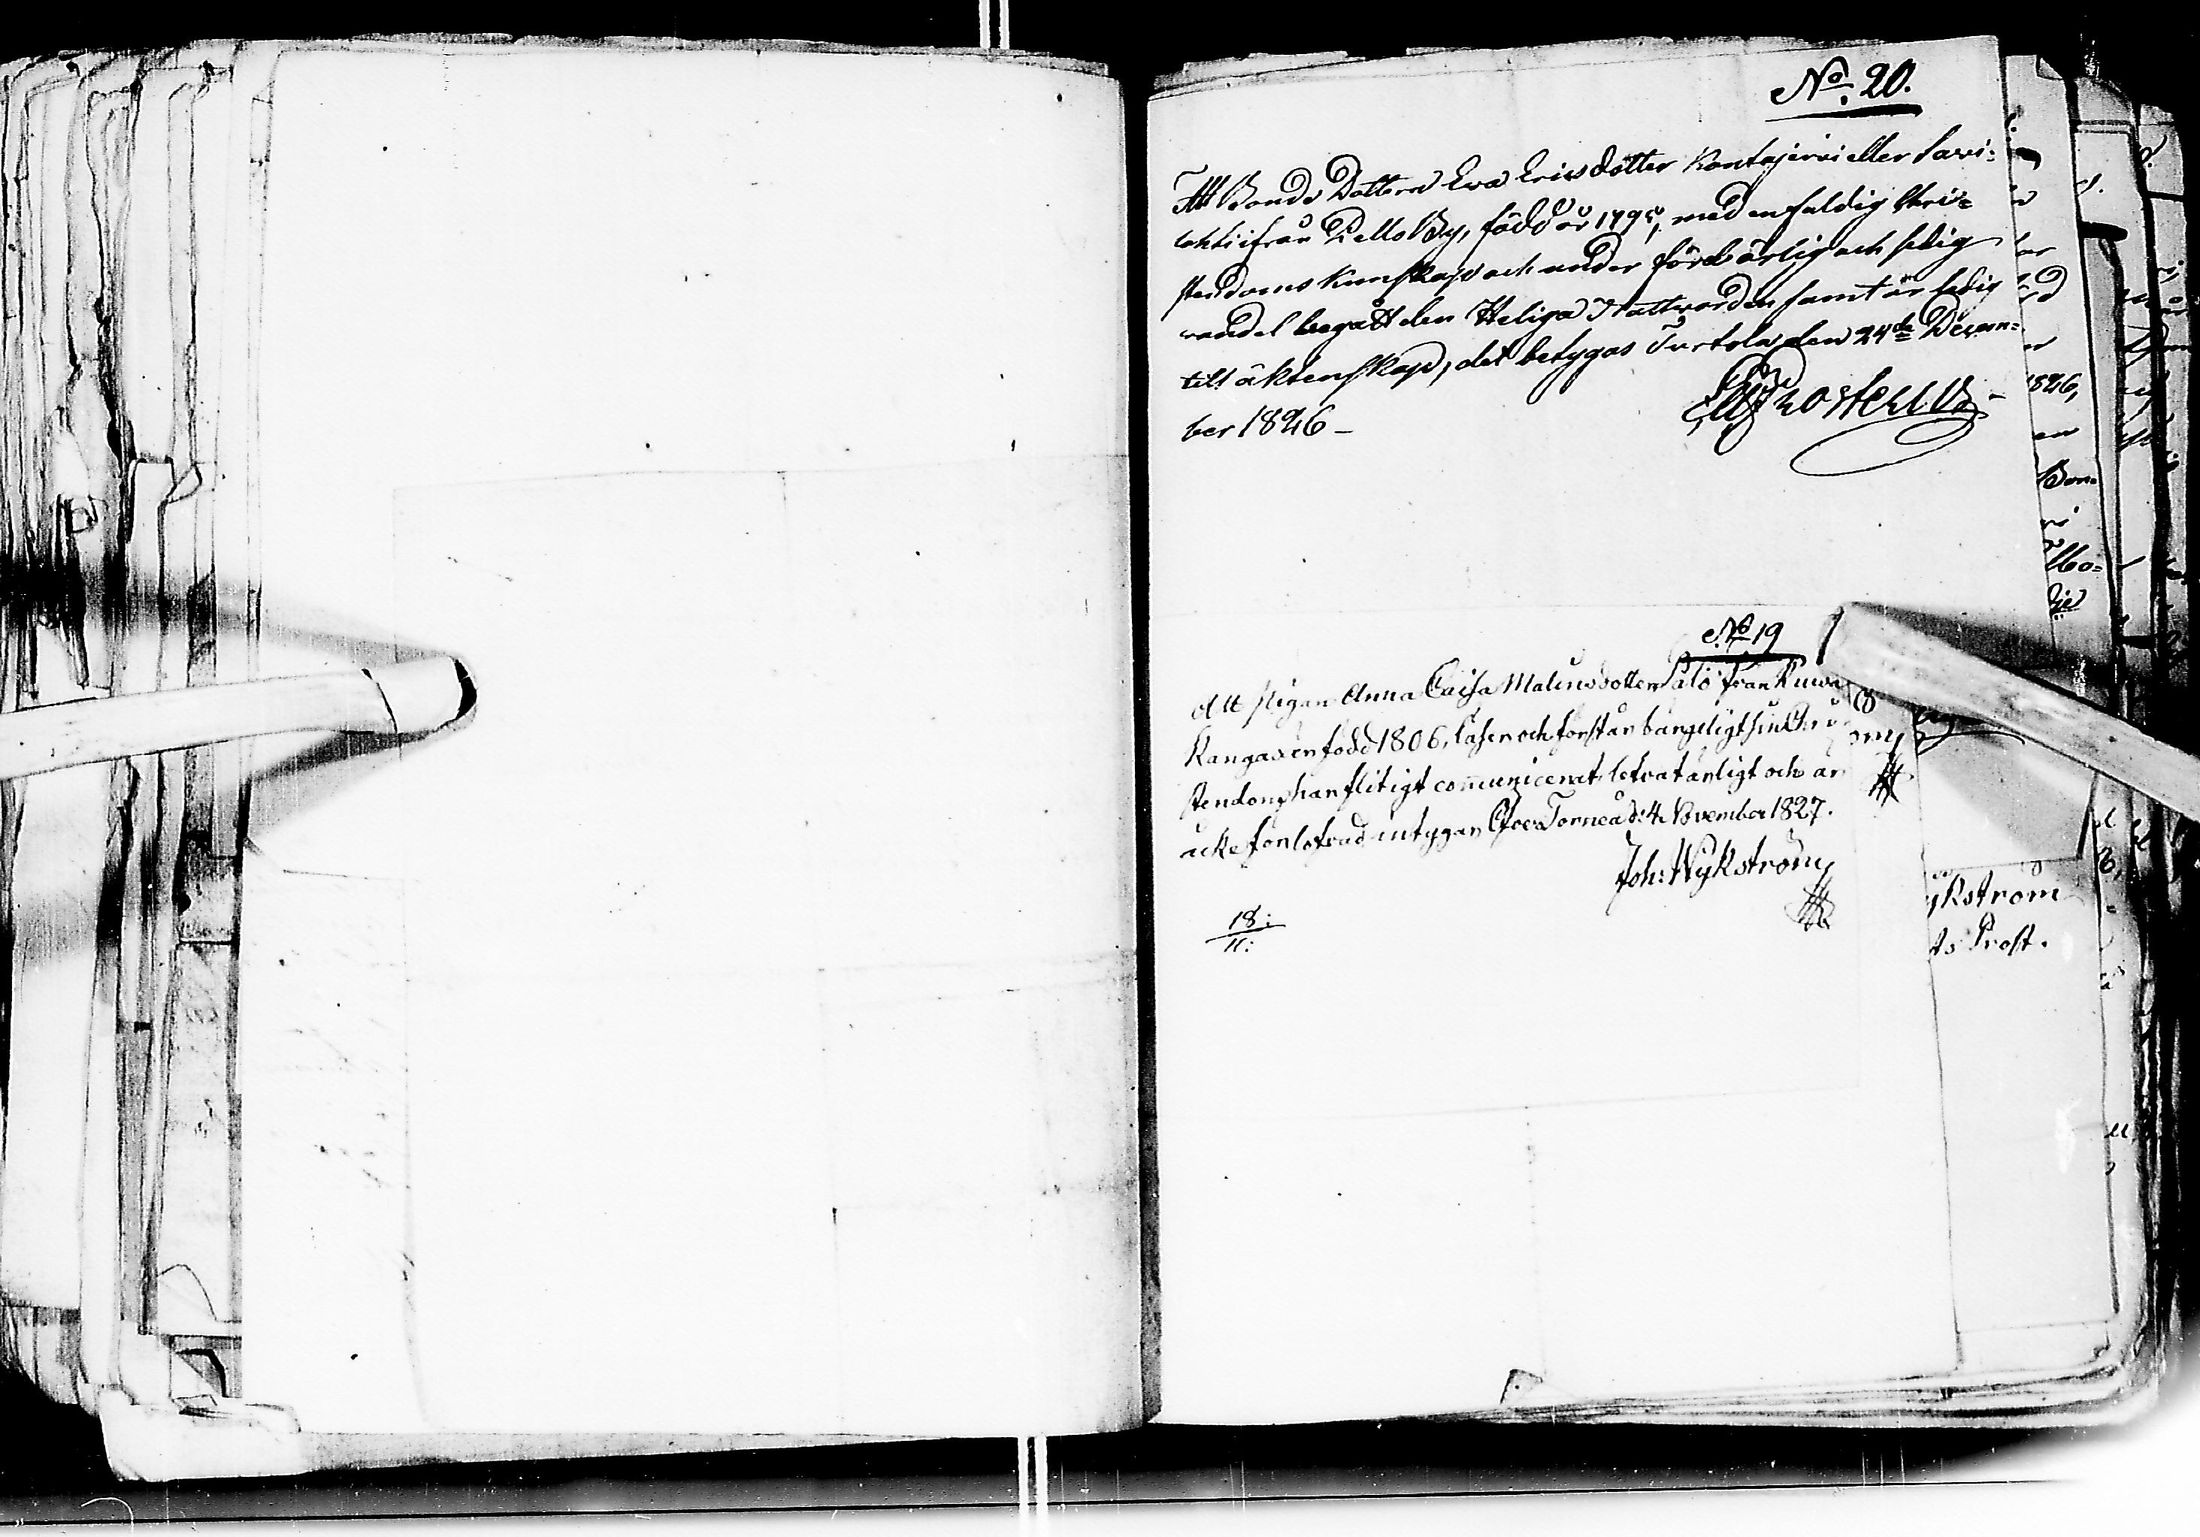 No. 20.
Att Bonde Dottern Ewa Ericsdotter Kontajervi eller Savi=
lahti ifrån Pello By, född år 1795, med enfaldig Chris=
tendoms kunskap och under förd ärlig och sedig
vandel begått den Heliga Nattvarden samt är ledig
till äktenskap, det betygas Turtola den 24de Decem=
ber 1826 –
No 19
Att pigan Anna Caisa Malinsdotter Palo från Kuiva
Kangas är född 1806, läser och förstår
stendom, har flitigt communicerat, lefvat ärligt och är
icke förlofvad intygar Öfver Torneå d: 4 November 1827.
Joh: Wykström
18:
11:
1826,
Bon=
ykström
ts Prost.